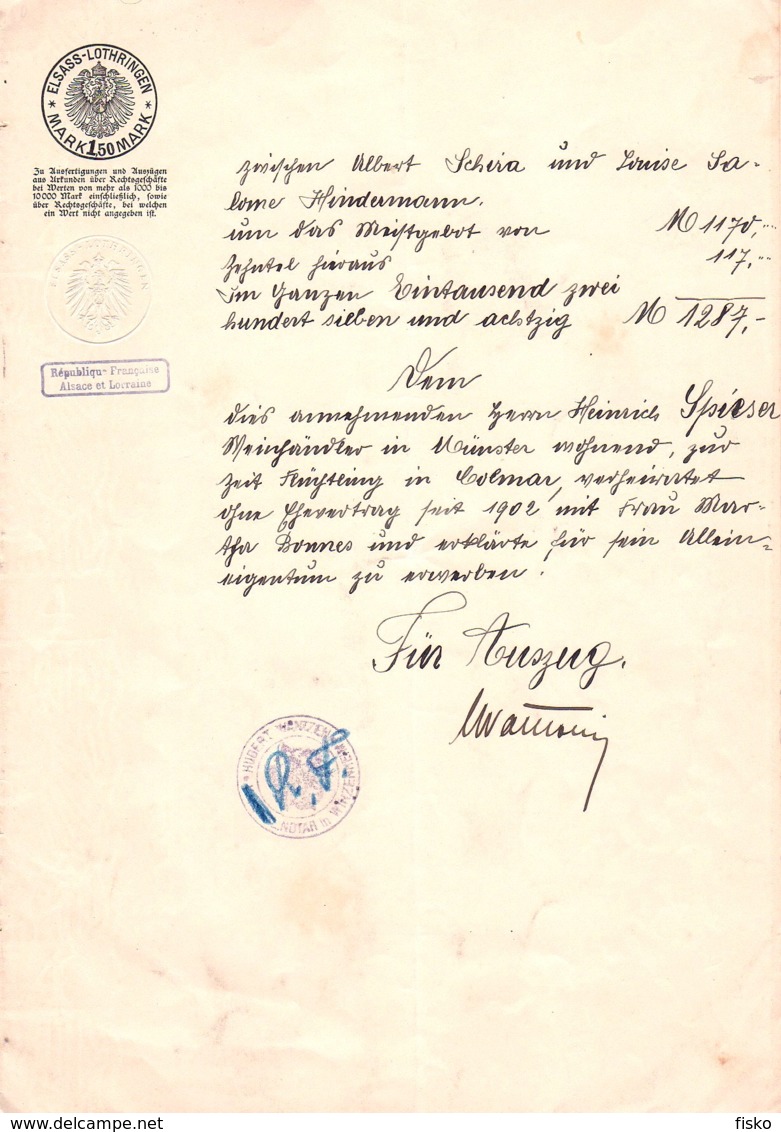 ELSASS-LOTHRINGEN
* MARK 1,50 MARK *
Zu Ausfertigungen und Auszügen
aus Urkunden über Rechtsgeschäfte
bei Werten von mehr als 1000 bis
10000 Mark einschließlich, sowie
über Rechtsgeschäfte, bei welchen
ein Wert nicht angegeben ist.
ELSASS-LOTHRINGEN
République Française
Alsace et Lorraine
zwischen Albert Schira und Louise Sa-
lome Hindermann.
um das Meistgebot von M 1170,--
Zehntel hieraus 117,--
Im Ganzen Eintausend zwei
hundert sieben und achtzig M 1287,-
Dem
dies annehmenden Herrn Heinrich Spieser
Weinhändler in Münster wohnend, zur
Zeit Flüchtling in Colmar, verheiratet
ohne Ehevertrag seit 1902 mit Frau Mar-
tha Bonnes und erklärte für sein Allein-
eigentum zu erwerben.
Für Auszug.
HUBERT WANTZEN
NOTAR in
R. F.
delcampe.net
fisko